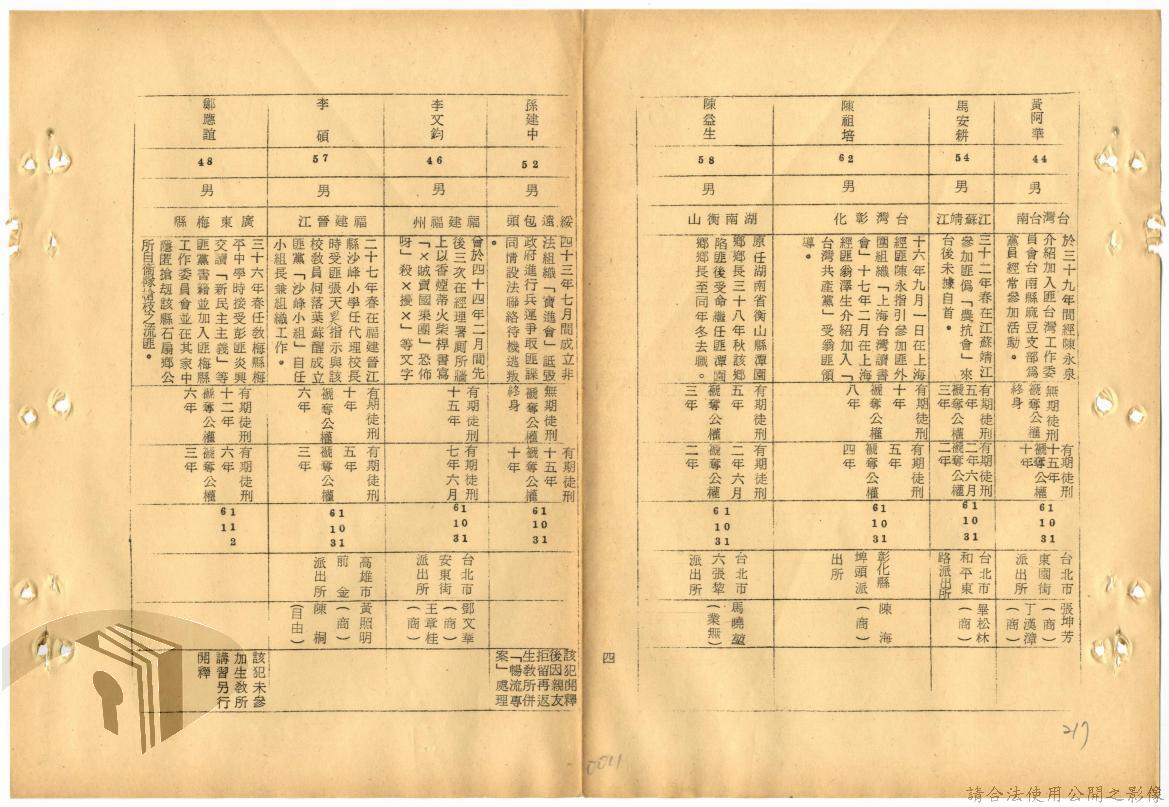 黃阿華
44
男
台灣台南
於三十九年間經陳永泉
介紹加入匪台灣工作委
員會台南縣麻豆支部為
黨員經常參加活動。
無期徒刑
褫奪公權
終身
有期徒刑
十五年
褫奪公權
十年
61
10
31
台北市
東園街
派出所
張坤芳
(商)
丁漢漳
(商)
馬安耕
54
男
江蘇靖江
三十二年春在江蘇靖江
參加匪偽「農抗會」來
台後未據自首。
有期徒刑
五年
褫奪公權
三年
有期徒刑
二年六月
褫奪公權
二年
61
10
31
台北市
和平東
路派出所
畢松林
(商)
陳祖培
62
男
台灣彰化
十六年九月一日在上海
經匪陳永指引參加匪外
團組織「上海台灣讀書
會」十七年二月在上海
經匪翁澤生介紹加入「
台灣共產黨」受翁匪領
導。
有期徒刑
十年
褫奪公權
八年
有期徒刑
五年
褫奪公權
四年
61
10
31
彰化縣
埤頭派
出所
陳海
(商)
陳益生
58
男
湖南衡山
原任湖南省衡山縣潭園
鄉鄉長三十八年秋該鄉
陷匪後受命繼任匪潭園
鄉鄉長至同年冬去職。
有期徒刑
五年
褫奪公權
三年
有期徒刑
二年六月
褫奪公權
二年
61
10
31
台北市
六張犂
派出所
馬曉堃
(業無)
四
孫建中
52
男
綏遠包頭
四十三年七月間成立非
法組織「實進會」詆毀
政府進行兵運爭取匪諜
同情設法聯絡待機逃叛
無期徒刑
褫奪公權
終身
有期徒刑
十五年
褫奪公權
十年
61
10
31
該犯開釋
後因親友
拒留再返
生教所併
「暢流專
案」處理
李文鈞
46
男
福建福州
曾於四十四年二月間先
後三次在經理署厠所牆
上以香煙蒂火柴桿書寫
「×賊賣國集團」恐怖
呀」殺×擾××」等文字
有期徒刑
十五年
有期徒刑
七年六月
61
10
31
台北市
安東街
派出所
鄧文華
(商)
王章桂
(商)
李碩
57
男
福建晉江
二十七年春在福建晉江
縣沙峰小學任代理校長
時受匪張天昃指示與該
校教員何落葉蘇醒成立
匪黨「沙峰小組」自任
小組長兼組織工作。
有期徒刑
十年
褫奪公權
六年
有期徒刑
五年
褫奪公權
三年
61
10
31
高雄市
前金
派出所
黃照明
(商)
陳桐
(自由)
鄒應誼
48
男
廣東梅縣
三十六年春任教梅縣梅
平中學時接受彭匪炎興
交讀「新民主主義」等
匪黨書籍並加入匪梅縣
工作委員會並在其家中
隱匿搶劫該縣石扇鄉公
所自衛隊槍枝之流匪。
有期徒刑
十二年
褫奪公權
六年
有期徒刑
六年
褫奪公權
三年
61
11
2
該犯未參
加生教所
講習另行
開釋
217
0041
請合法使用公開之影像